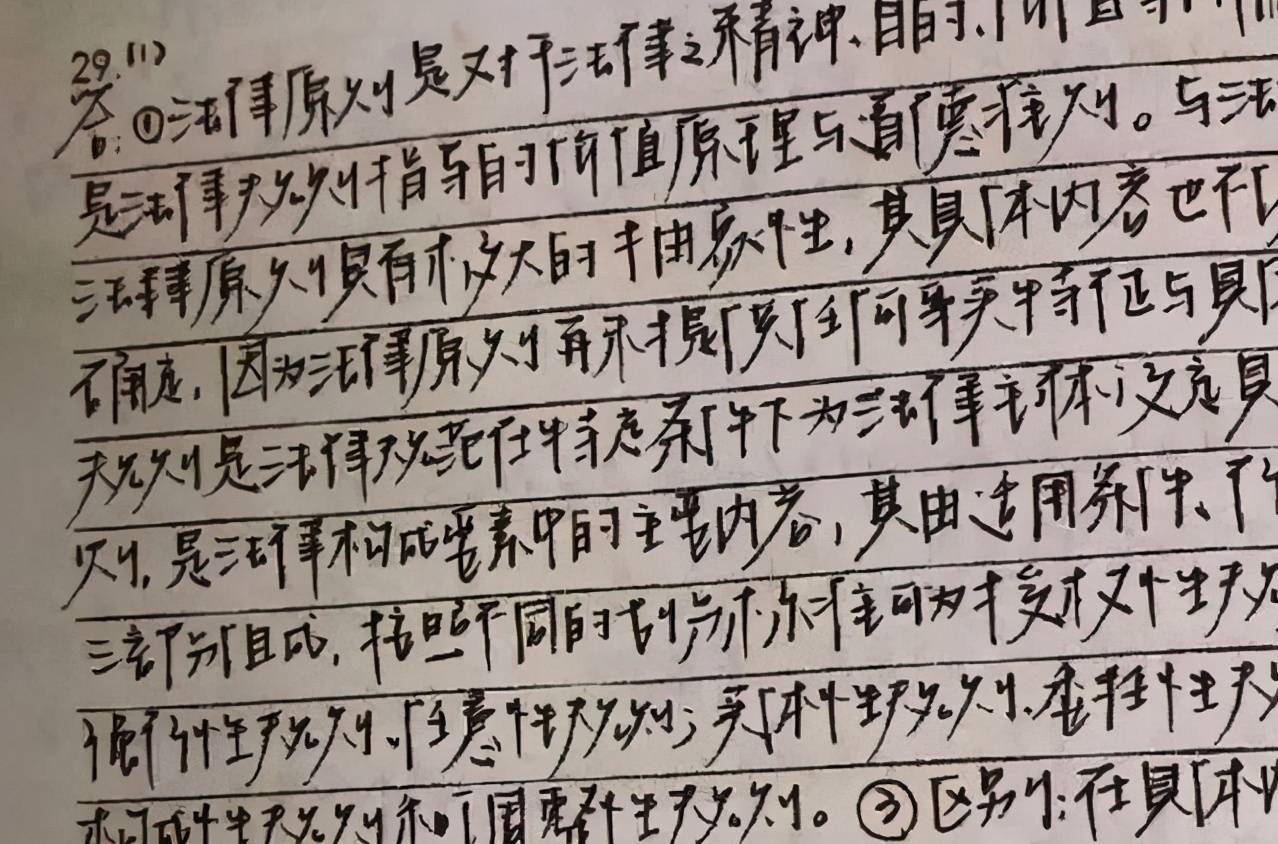 29.(1)
答:①法律原则是对于法律之精神、目的、价值等
是法律规则指导的价值原理与道德准则。与法
法律原则具有极大的抽象性,其具体内容也不
确定,因为法律原则再未提供任何事实特征与具
规则是法律规范在特定条件下为法律主体设定具
则,是法律构成要素中的主要内容,其由适用条件、
三部分组成,按照不同的划分标准可为授权性规
强行性规则、任意性规则;实体性规则、委任性规
构成性规则和调整性规则。③区别:在具体内